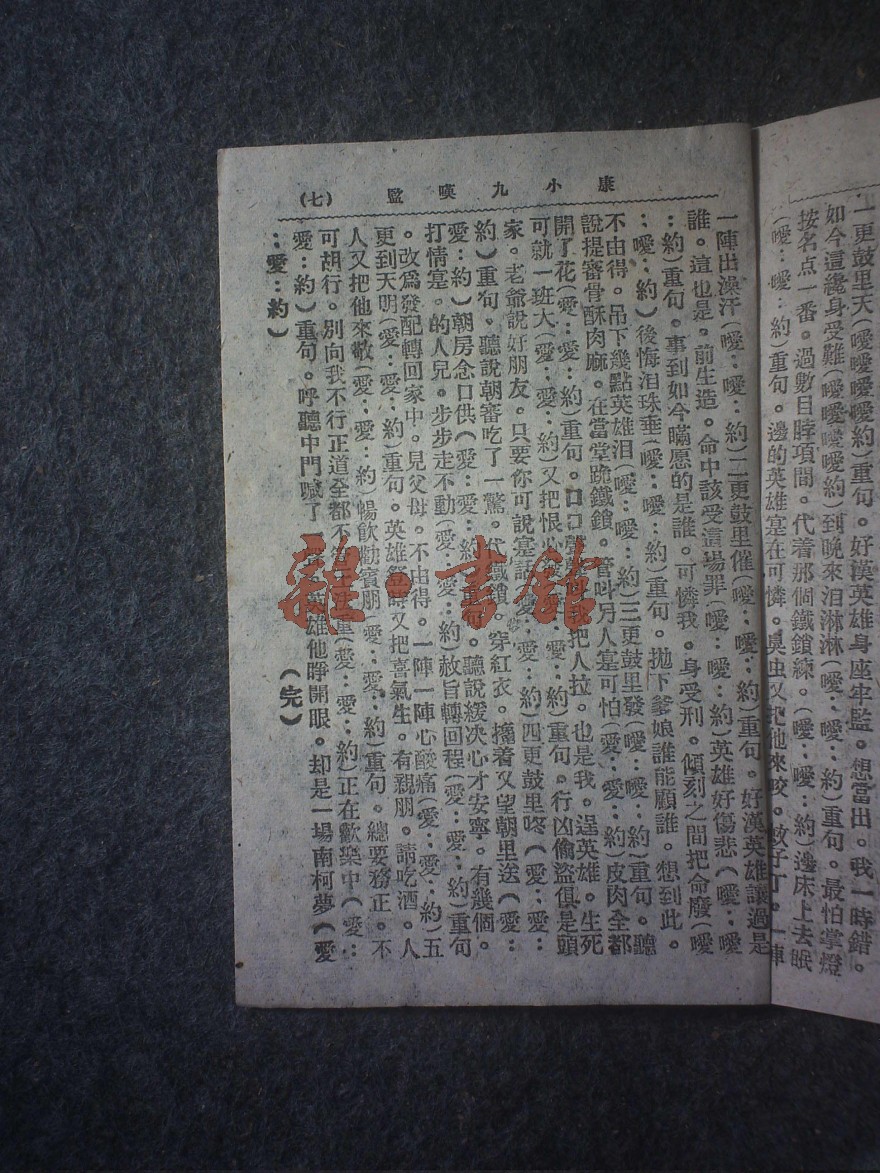 一更鼓里天(噯噯噯噯約)重句。好漢英雄身座牢監。想當出。我一時錯。
如今這纔身受難(噯噯噯噯約)到晚來泪淋淋(噯：噯：約)重句。最怕掌燈
按名点一番。過數目脖項間。代着那個鐵鎖練。(噯：噯：約)邊床上去眠
(噯：噯：約)重句。邊的英雄寔在可憐。臭虫又把他來咬。蚊子丁。一陣
康小九嘆監 (七)
一陣出澡汗(噯：噯：約)二更鼓里催(噯：噯：約)重句。好漢英雄讓過是
誰。這也是。前生造。命中該受這場罪(噯：噯：約)英雄好傷悲(噯：噯
：約)重句。事到如今瞞愿的是誰。可憐我。身受刑。傾刻之間把命廢(噯
：噯：約)後悔泪珠垂(噯：噯：約)重句。抛下爹娘誰能顧誰。想到此。
不由得。吊下幾點英雄泪(噯：噯：約)三更鼓里發(噯：噯：約)重句。聽
說提審骨酥肉麻。在當堂跪鐵鎖。管叫另人寔可怕(愛：愛：約)皮肉全都
開了花(愛：愛：約)重句。口口聲聲我把人拉。也是我。逞英雄。生死
可就一班大(愛：愛：約)又把恨心愛：約)重句。行凶偷盜俱是頭
家。老爺說好朋友。只要你可說寔話愛：約)四更鼓里咚(愛：愛：
約)重句。聽說朝審吃了一驚。代鐵鎖。穿紅衣。擕着又望朝里送(愛：
愛：約)朝房念口供(愛：愛：約重句。聽說緩决心才安寧。有幾個。
打情寔。的人兒。步步走不動(愛：愛：約)赦旨轉回程(愛：愛：約)重句
。改爲發配轉回家中。見父母。不由得。一陣一陣心酸痛(愛：愛：約)五
更到天明(愛：愛：約)重句。英雄時又把喜氣生。有親朋。請吃酒。人
人又把他來敬(愛：愛：約)暢飲勸賓朋(愛：愛：約)重句。總要務正。不
可胡行。別向我不行正道全都不重(愛：愛：約)正在歡樂中(愛：
愛：約)重句。呼聽中門喊了一英雄他睜開眼。却是一場南柯夢(愛
：愛：約)
(完)
雜·書館